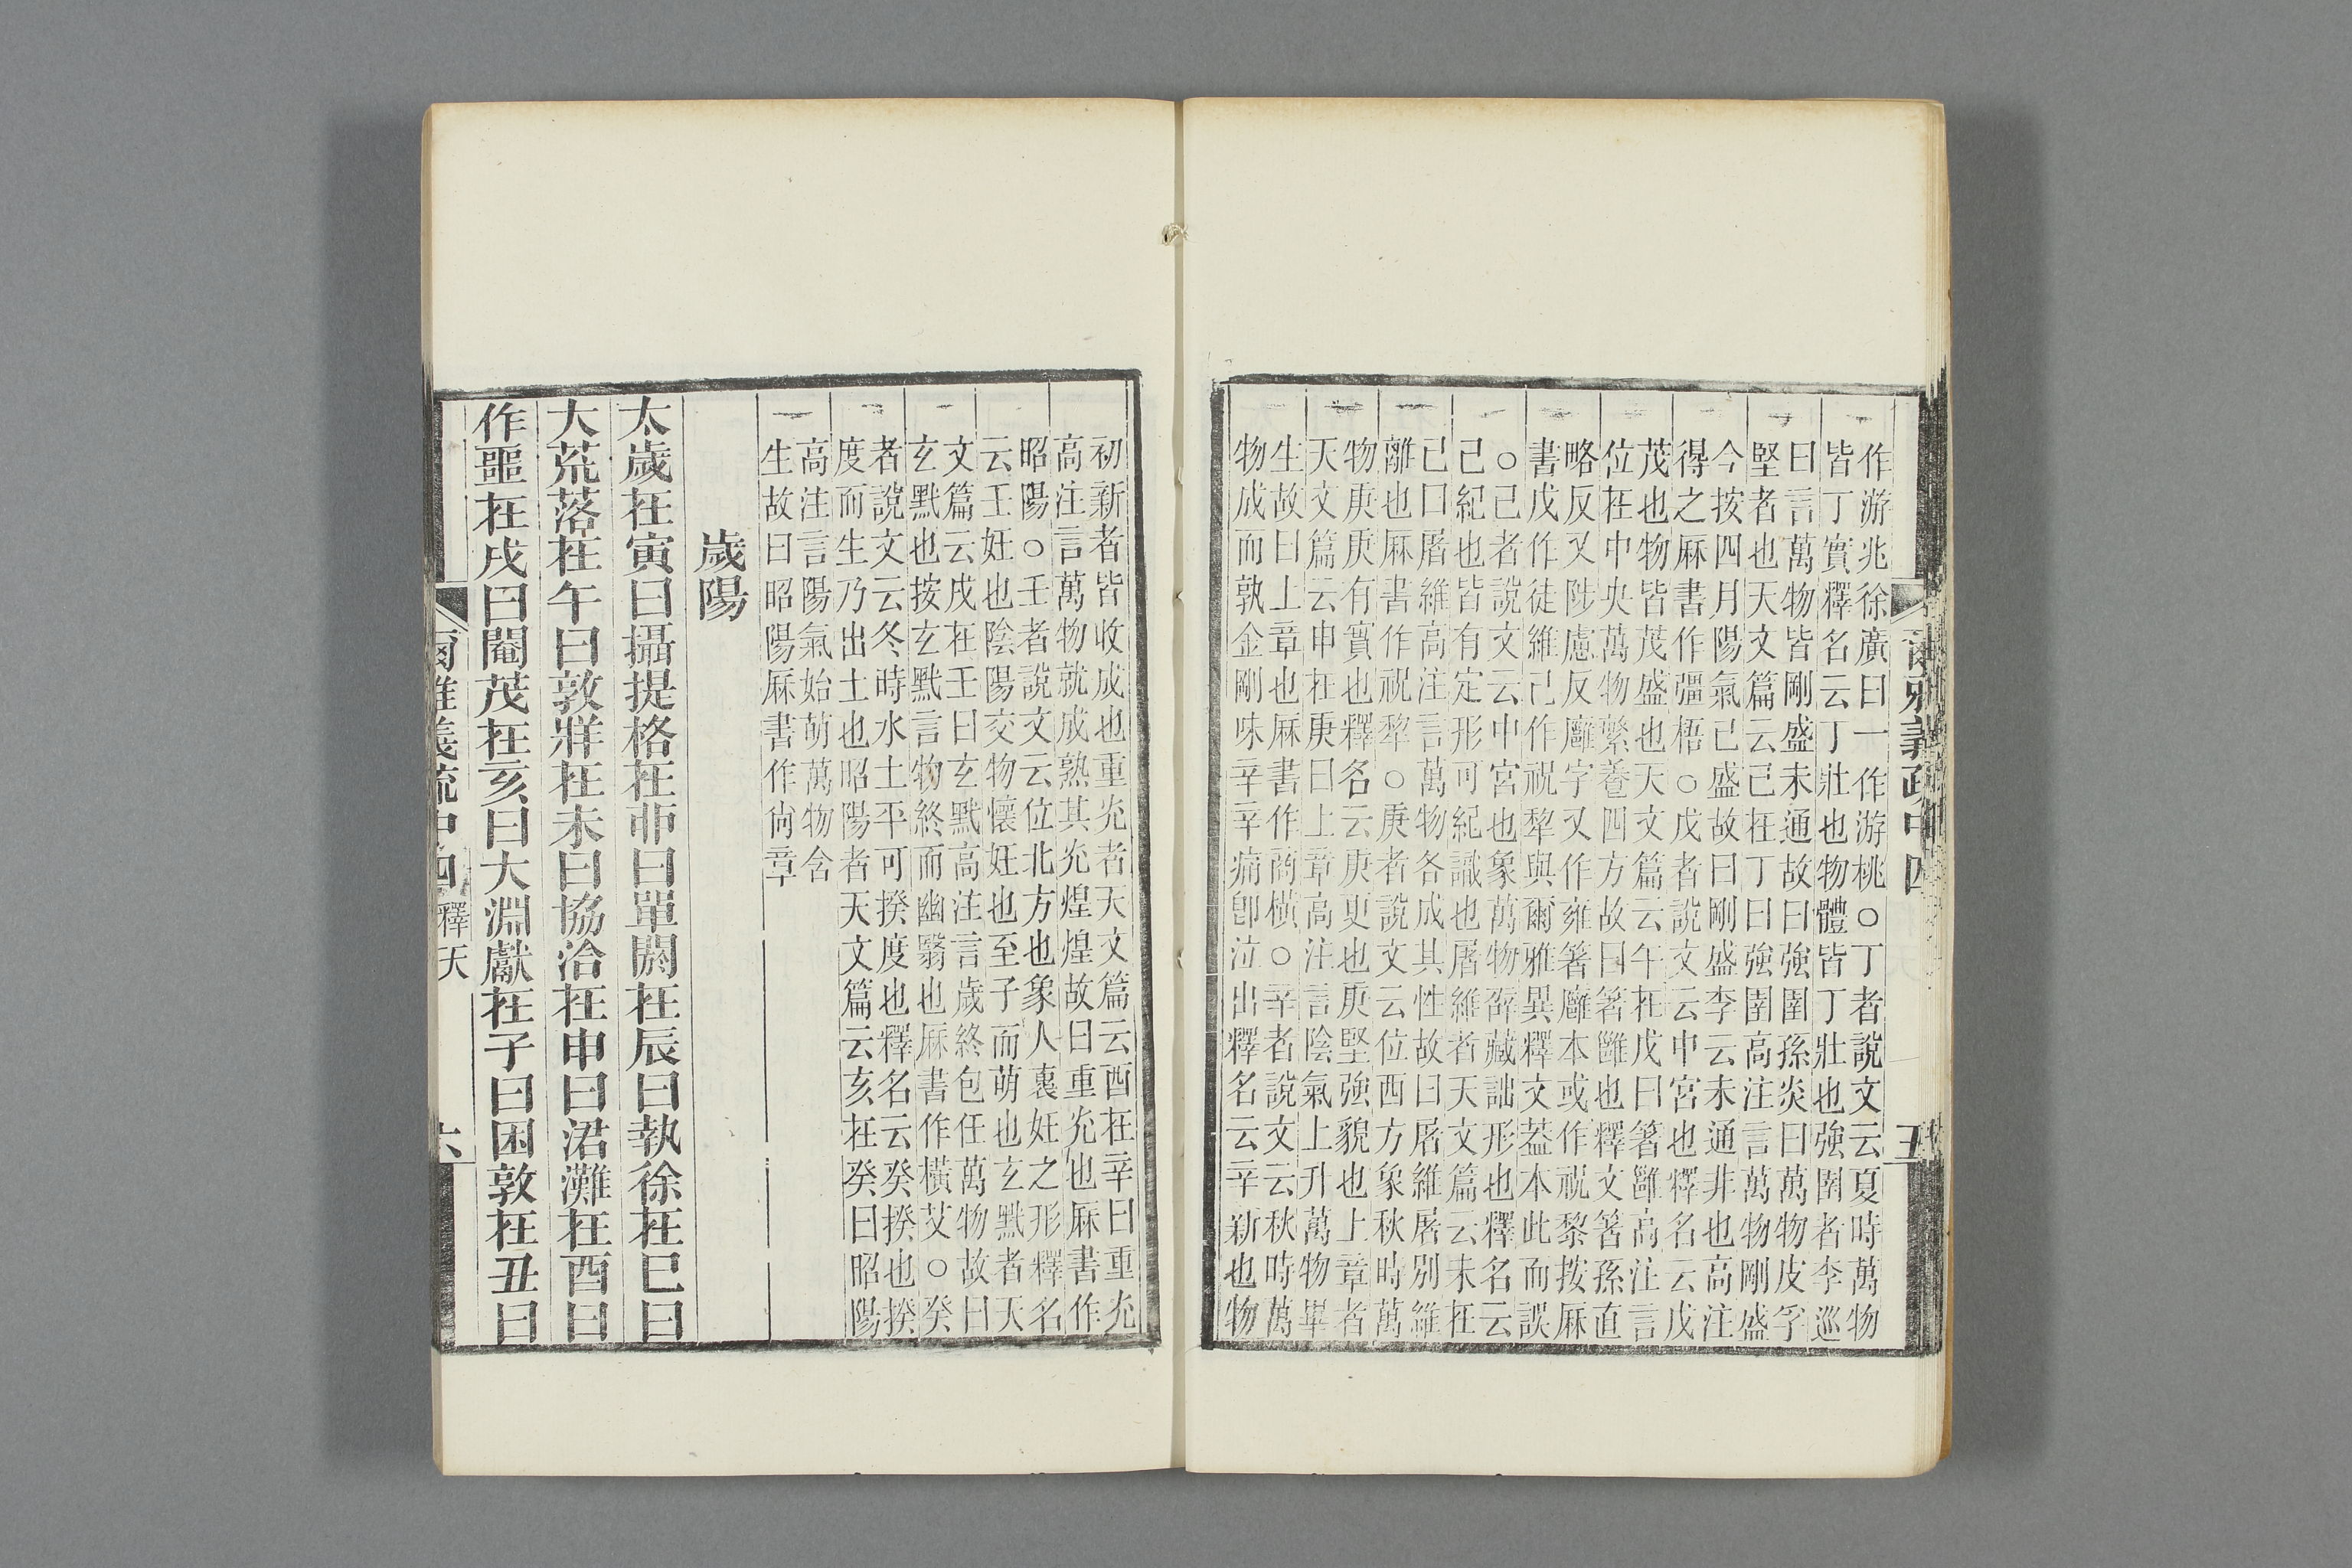 作游兆徐廣曰一作游桃○丁者說文云夏時萬物
皆丁實釋名云丁壯也物體皆丁壯也強圉者李巡
曰言萬物皆剛盛未通故曰強圉孫炎曰萬物皮孚
堅者也天文篇云巳在丁曰強圉高注言萬物剛盛
今按四月陽氣已盛故曰剛盛李云未通非也高注
得之厤書作彊梧○戊者說文云中宮也釋名云戊
茂也物皆茂盛也天文篇云午在戊曰箸雝高注言
位在中央萬物繁養四方故曰箸雝也釋文箸孫直
略反又陟慮反廱字又作雍箸廱本或作祝黎按厤
書戊作徒維己作祝犂與爾雅異釋文葢本此而誤
○己者說文云中宮也象萬物辟藏詘形也釋名云
己紀也皆有定形可紀識也屠維者天文篇云未在
己曰屠維高注言萬物各成其性故曰屠維屠別維
離也厤書作祝犂○庚者說文云位西方象秋時萬
物庚庚有實也釋名云庚更也庚堅強貌也上章者
天文篇云申在庚曰上章高注言陰氣上升萬物畢
生故曰上章也厤書作商橫○辛者說文云秋時萬
物成而孰金剛味辛辛痛卽泣出釋名云辛新也物
爾雅義疏中四 五
初新者皆收成也重光者天文篇云酉在辛曰重光
高注言萬物就成熟其光煌煌故曰重光也厤書作
昭陽○壬者說文云位北方也象人褢妊之形釋名
云壬妊也陰陽交物懷妊也至子而萌也玄黓者天
文篇云戌在壬曰玄黓高注言歲終包任萬物故曰
玄黓也按玄黓言物終而幽翳也厤書作橫艾○癸
者說文云冬時水土平可揆度也釋名云癸揆也揆
度而生乃出土也昭陽者天文篇云亥在癸曰昭陽
高注言陽氣始萌萬物含
生故曰昭陽厤書作尙章
歲陽
太歲在寅曰攝提格在丣曰單閼在辰曰執徐在巳曰
大荒落在午曰敦牂在未曰協洽在申曰涒灘在酉曰
作噩在戌曰閹茂在亥曰大淵獻在子曰困敦在丑曰
爾雅義疏中四 釋天 六